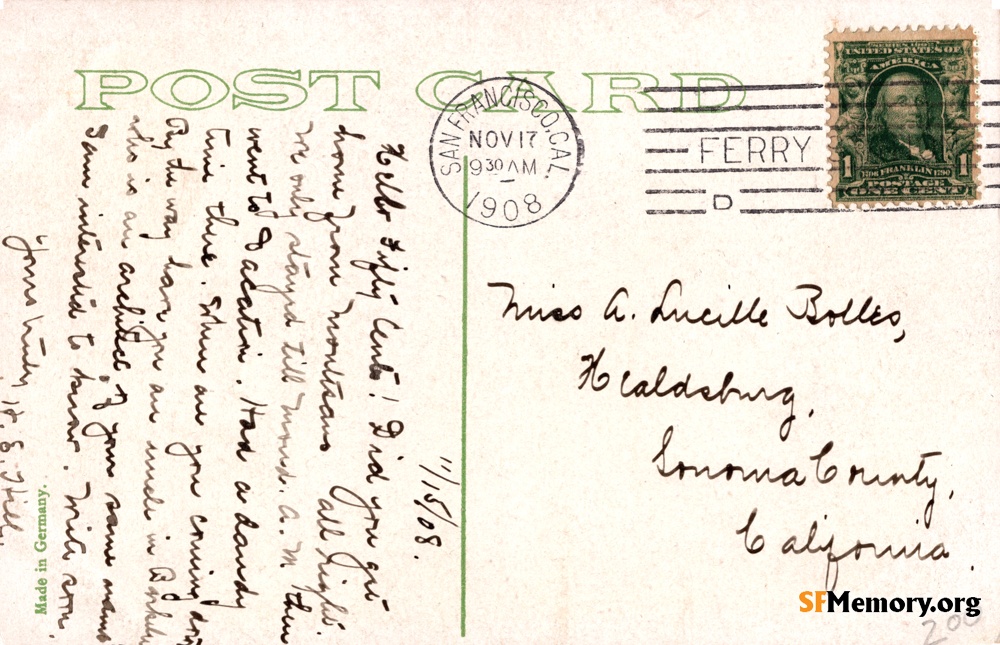 POST CARD
SAN FRANCISCO, CAL.
NOV 17
9 30 AM
1908
FERRY
D
SERIES 1902
UNITED STATES OF
AMERICA
1706 FRANKLIN 1790
1 1
POSTAGE
ONE CENT
11/15/08.
Hello Fifty Cents! Did you get
home from all right.
We only stayed till Mond. A.M. then
went to Vacation. Had a dandy
time there. When are you coming
By the way have you an uncle in
who is an architect of your same name
I am interested to know. Write soon.
Yours truly
Made in Germany.
Miss A. Lucille Bolles,
Healdsburg,
Sonoma County,
California
SFMemory.org
200